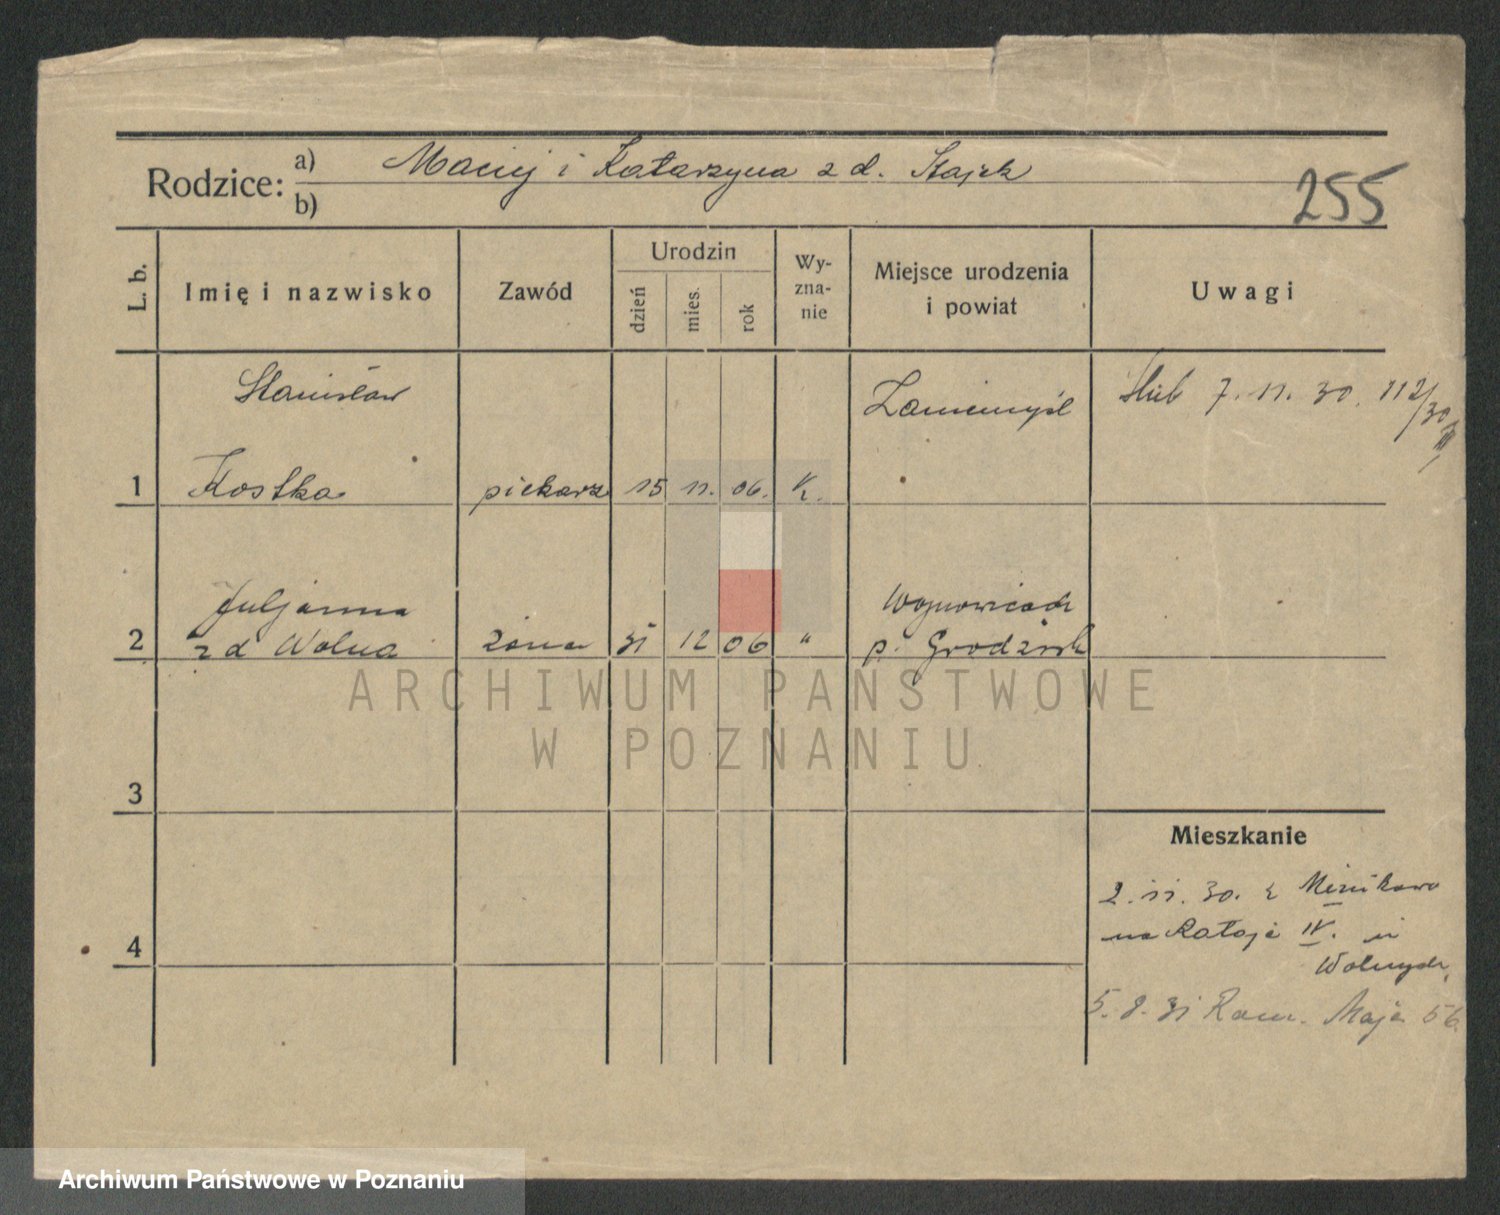 Rodzice: a) Maciej i Katarzyna z d. Stajek
b)
255
L. b.
Imię i nazwisko
Zawód
Urodzin
dzień
mies.
rok
Wy-
zna-
nie
Miejsce urodzenia
i powiat
Uwagi
Stanisław
Zaniemyśl
Ślub 7. 11. 30. 112/30
1
Kostka
piekarz
15
11.
06.
k.
Juljanna
Wojnowicach
2
z d Wolna
żona
31
12
06
"
p. Grodzisk
3
Mieszkanie
2. 11. 30. z Minikowo
na Rataje IV. u
Wolnych,
4
5. 8. 31 Maja 56
ARCHIWUM PAŃSTWOWE
W POZNANIU
Archiwum Państwowe w Poznaniu